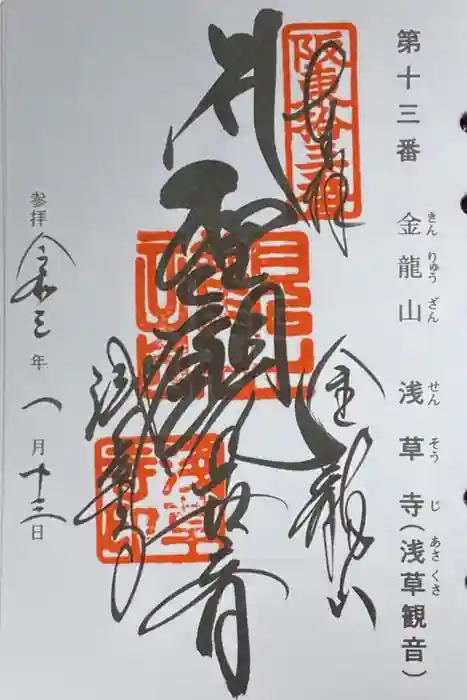 第十三番 金龍山 浅草寺(浅草観音)
きん りゅう ざん せん そう じ あさ くさ
阪東拾三番
奉拝
金龍山
聖観世音
浅草寺
浅草寺印
参拝 令和三年 一月 十三日